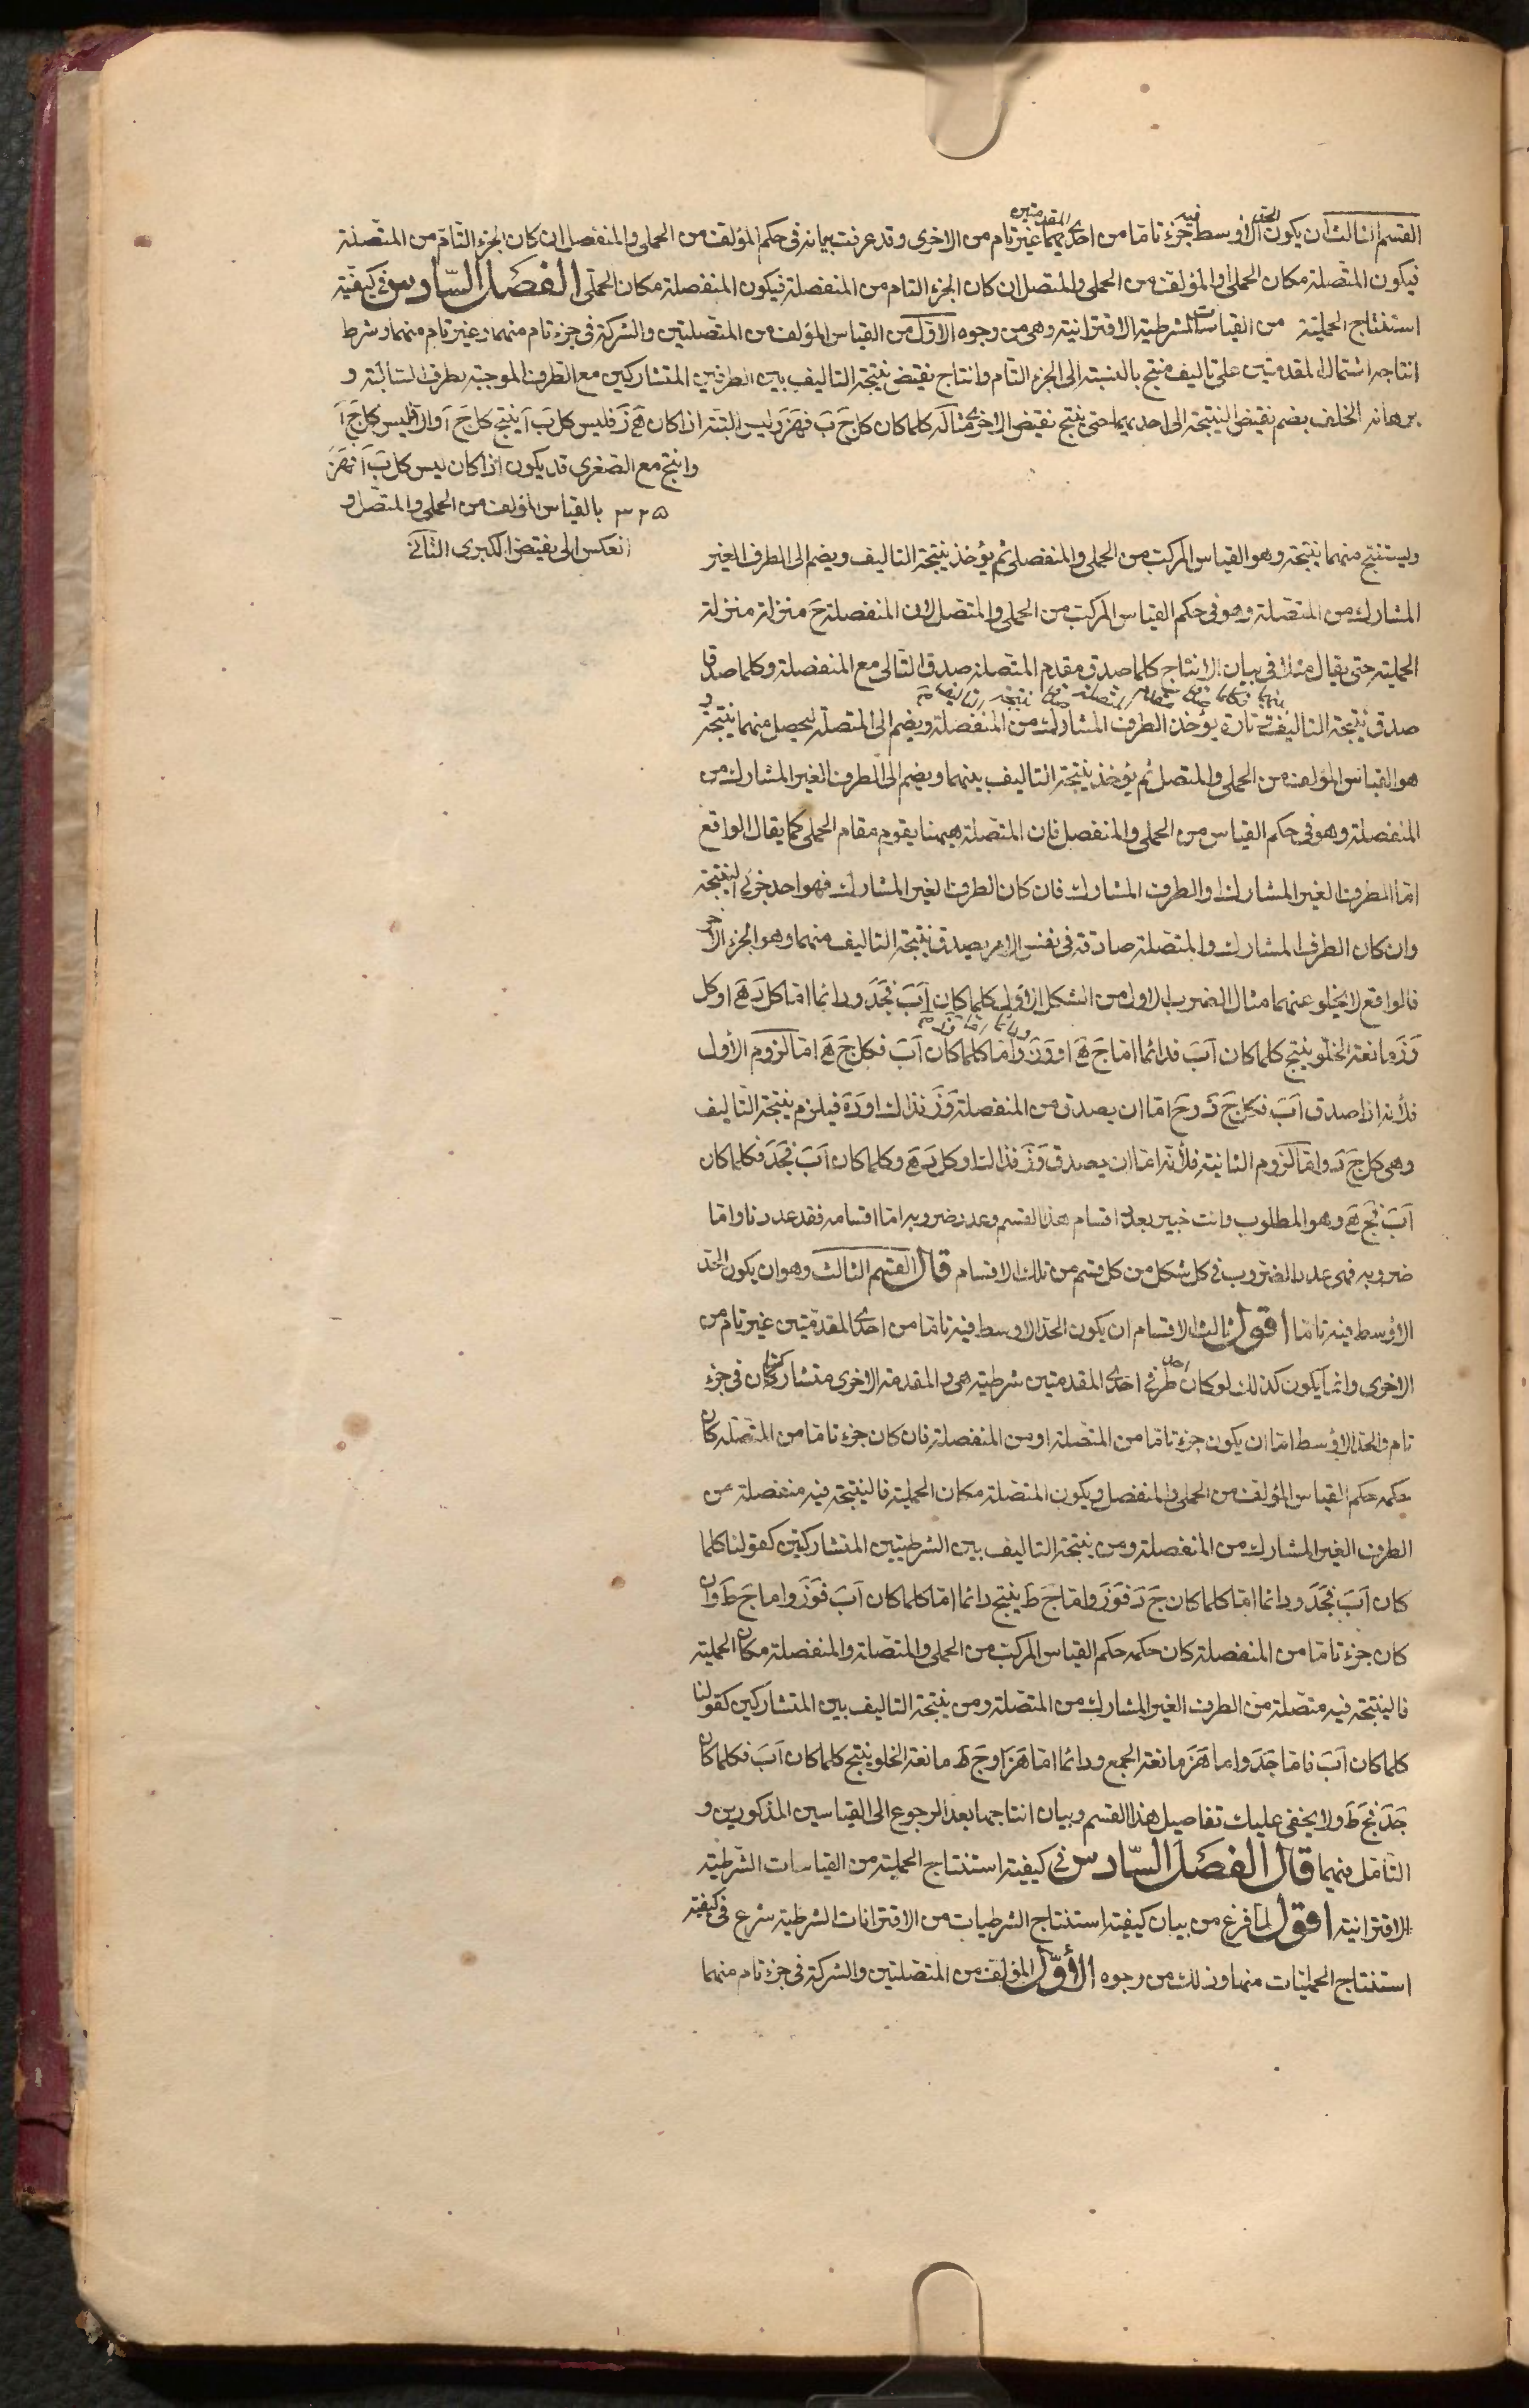 القسم الثالث ان يكون الحد الاوسط فيه جزء تاما من احدى المقدمتين غير تام من الاخرى وقد عرفت بيانه فى حكم المؤلف من الحملى والمنفصل ان كان الجزء التام من المتصلة
فيكون المتصلة مكان الحملى والمؤلف من الحملى والمتصل ان كان الجزء التام من المنفصلة فيكون المنفصلة مكان الحملى الفصل السادس فى كيفية
استنتاج الحملية من القياسات الشرطية الاقترانية وهى من وجوه الاول من القياس المؤلف من المتصلتين والشركة فى جزء تام منهما وغير تام منهما وشرط
انتاجه اشتمال المقدمتين على تاليف منتج بالنسبة الى الجزء التام وانتاج نقيض نتيجة التاليف بين الطرفين المتشاركين مع الطرف الموجبة بطرف السالبة و
برهانه الخلف بضم نقيض النتيجة الى احديهما حتى ينتج نقيض الاخرى مثاله كلما كان كل جَ بَ فهَزَ وليس البتة اذا كان هَ زَ فليس كل بَ اَ ينتج كل جَ اَ والا فليس كل جَ اَ
وانتج مع الصغرى قد يكون اذا كان ليس كل بَ اَ فهَزَ
٣٢٥ بالقياس المؤلف من الحملى والمتصل و
انعكس الى نقيض الكبرى الثانى
وليستنتج منهما نتيجة وهو القياس المركب من الحملى والمنفصل ثم يؤخذ نتيجة التاليف ويضم الى الطرف الغير
المشارك من المتصلة وهو فى حكم القياس المركب من الحملى والمتصل لان المنفصلة ح منزلة منزلة
الحملية حتى يقال مثلا فى بيان الانتاج كلما صدق مقدم المتصلة صدق التالى مع المنفصلة وكلما صدقا
صدق نتيجة التاليف بينهما فكلما صدق مقدم المتصلة صدق نتيجة التاليف وتارة يؤخذ الطرف المشارك من المنفصلة ويضم الى المتصلة ليحصل منهما نتيجة و
هو القياس المؤلف من الحملى والمتصل ثم يؤخذ نتيجة التاليف بينهما ويضم الى الطرف الغير المشارك من
المنفصلة وهو فى حكم القياس من الحملى والمنفصل فان المتصلة ههنا يقوم مقام الحملى كما يقال الواقع
اما الطرف الغير المشارك او الطرف المشارك فان كان الطرف الغير المشارك فهو احد جزئى النتيجة
وان كان الطرف المشارك والمتصلة صادقة فى نفس الامر يصدق نتيجة التاليف منهما وهو الجزء الاخر
فالواقع لا يخلو عنهما مثال الضرب الاول من الشكل الاول كلما كان اَبَ فجَدَ ودائما اما كل دَ هَ او كل
وَزَ مانعة الخلو ينتج كلما كان اَبَ فدائما اما جَ هَ او وَزَ ودائما اما وَزَ واما كلما كان اَبَ فكل جَ هَ اما لزوم الاول
فلانه اذا صدق اَبَ فكل جَ دَ وح اما ان يصدق من المنفصلة وَزَ فذاك او دَهَ فيلزم نتيجة التاليف
وهى كل جَ دَ واما لزوم الثانية فلانه اما ان يصدق وَزَ فذاك او كل دَ هَ وكلما كان اَبَ فجَدَ فكلما كان
اَبَ فجَ هَ وهو المطلوب وانت خبير بعدد اقسام هذا القسم وعدد ضروبه اما اقسامه فقد عددنا واما
ضروبه فهى عدد الضروب فى كل شكل من كل قسم من تلك الاقسام قال القسم الثالث وهو ان يكون الحد
الاوسط فيه تاما اقول ثالث الاقسام ان يكون الحد الاوسط فيه تاما من احدى المقدمتين غير تام من
الاخرى وانما يكون كذلك لو كان احد طرفى احدى المقدمتين شرطية هى والمقدمة الاخرى متشاركتان فى جزء
تام والحد الاوسط اما ان يكون جزء تاما من المتصلة او من المنفصلة فان كان جزء تاما من المتصلة كان
حكمه حكم القياس المؤلف من الحملى والمنفصل ويكون المتصلة مكان الحملية فالنتيجة فيه منفصلة من
الطرف الغير المشارك من المنفصلة ومن نتيجة التاليف بين الشرطيتين المتشاركتين كقولنا كلما
كان اَبَ فجَدَ ودائما اما كلما كان جَ دَ فوَزَ واما جَ طَ ينتج دائما اما كلما كان اَبَ فوَزَ واما جَ طَ وان
كان جزء تاما من المنفصلة كان حكمه حكم القياس المركب من الحملى والمتصلة والمنفصلة مكان الحملية
فالنتيجة فيه متصلة من الطرف الغير المشارك من المتصلة ومن نتيجة التاليف بين المتشاركين كقولنا
كلما كان اَبَ فاما جَدَ واما هَزَ مانعة الجمع ودائما اما هَزَ او جَ طَ مانعة الخلو ينتج كلما كان اَبَ فكلما كان
جَدَ فجَ طَ ولا يخفى عليك تفاصيل هذا القسم وبيان انتاجها بعد الرجوع الى القياسين المذكورين و
التامل فيهما قال الفصل السادس فى كيفية استنتاج الحملية من القياسات الشرطية
الاقترانية اقول لما فرغ من بيان كيفية استنتاج الشرطيات من الاقترانات الشرطية شرع فى كيفية
استنتاج الحمليات منها وذلك من وجوه الاول المؤلف من المتصلتين والشركة فى جزء تام منهما